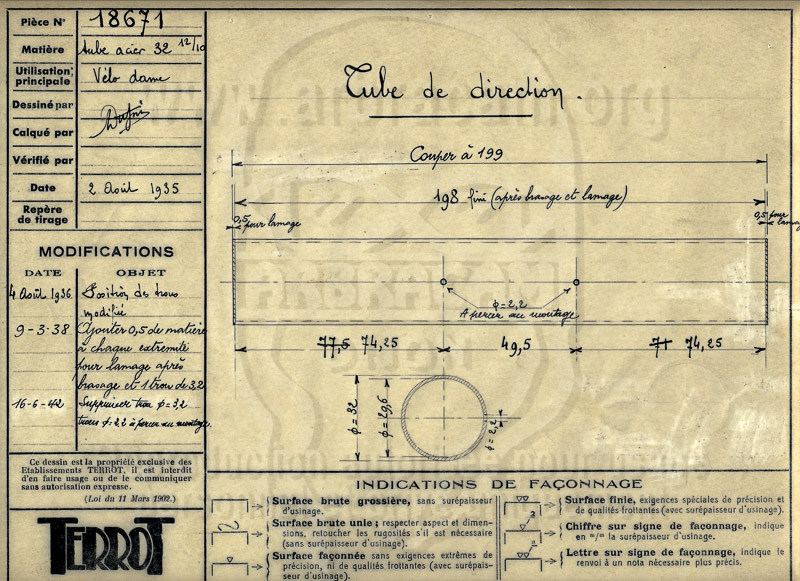 Pièce N° 18671
Matière Tube acier 32 12/10
Utilisation principale Vélo dame
Dessiné par
Calqué par
Vérifié par
Date 2 Août 1935
Repère de tirage
MODIFICATIONS
DATE OBJET
4 Août 1936 Position des trous
modifiée
9-3-38 Ajouter 0,5 de matière
à chaque extremité
pour lamage après
brasage et 1 trou de 3,2
16-6-42 Supprimer trou φ=3,2
trous φ=2,2 à percer au montage.
Ce dessin est la propriété exclusive des
Etablissements TERROT, il est interdit
d'en faire usage ou de le communiquer
sans autorisation expresse.
(Loi du 11 Mars 1902.)
TERROT
Tube de direction.
Couper à 199
198 fini (après brasage et lamage)
0,5 pour lamage
0,5 pour lamage
φ=2,2
A percer au montage
77,5 74,25 49,5 71 74,25
φ=32
φ=29,6
φ=2,2
INDICATIONS DE FAÇONNAGE
Surface brute grossière, sans surépaisseur
d'usinage.
Surface brute unie; respecter aspect et dimen-
sions, retoucher les rugosités s'il est nécessaire
(sans surépaisseur d'usinage).
Surface façonnée sans exigences extrêmes de
précision, ni de qualités frottantes (avec surépais-
seur d'usinage).
Surface finie, exigences spéciales de précision et
de qualités frottantes (avec surépaisseur d'usinage).
Chiffre sur signe de façonnage, indique
en m/m la surépaisseur d'usinage.
Lettre sur signe de façonnage, indique le
renvoi à un nota nécessaire plus précis.